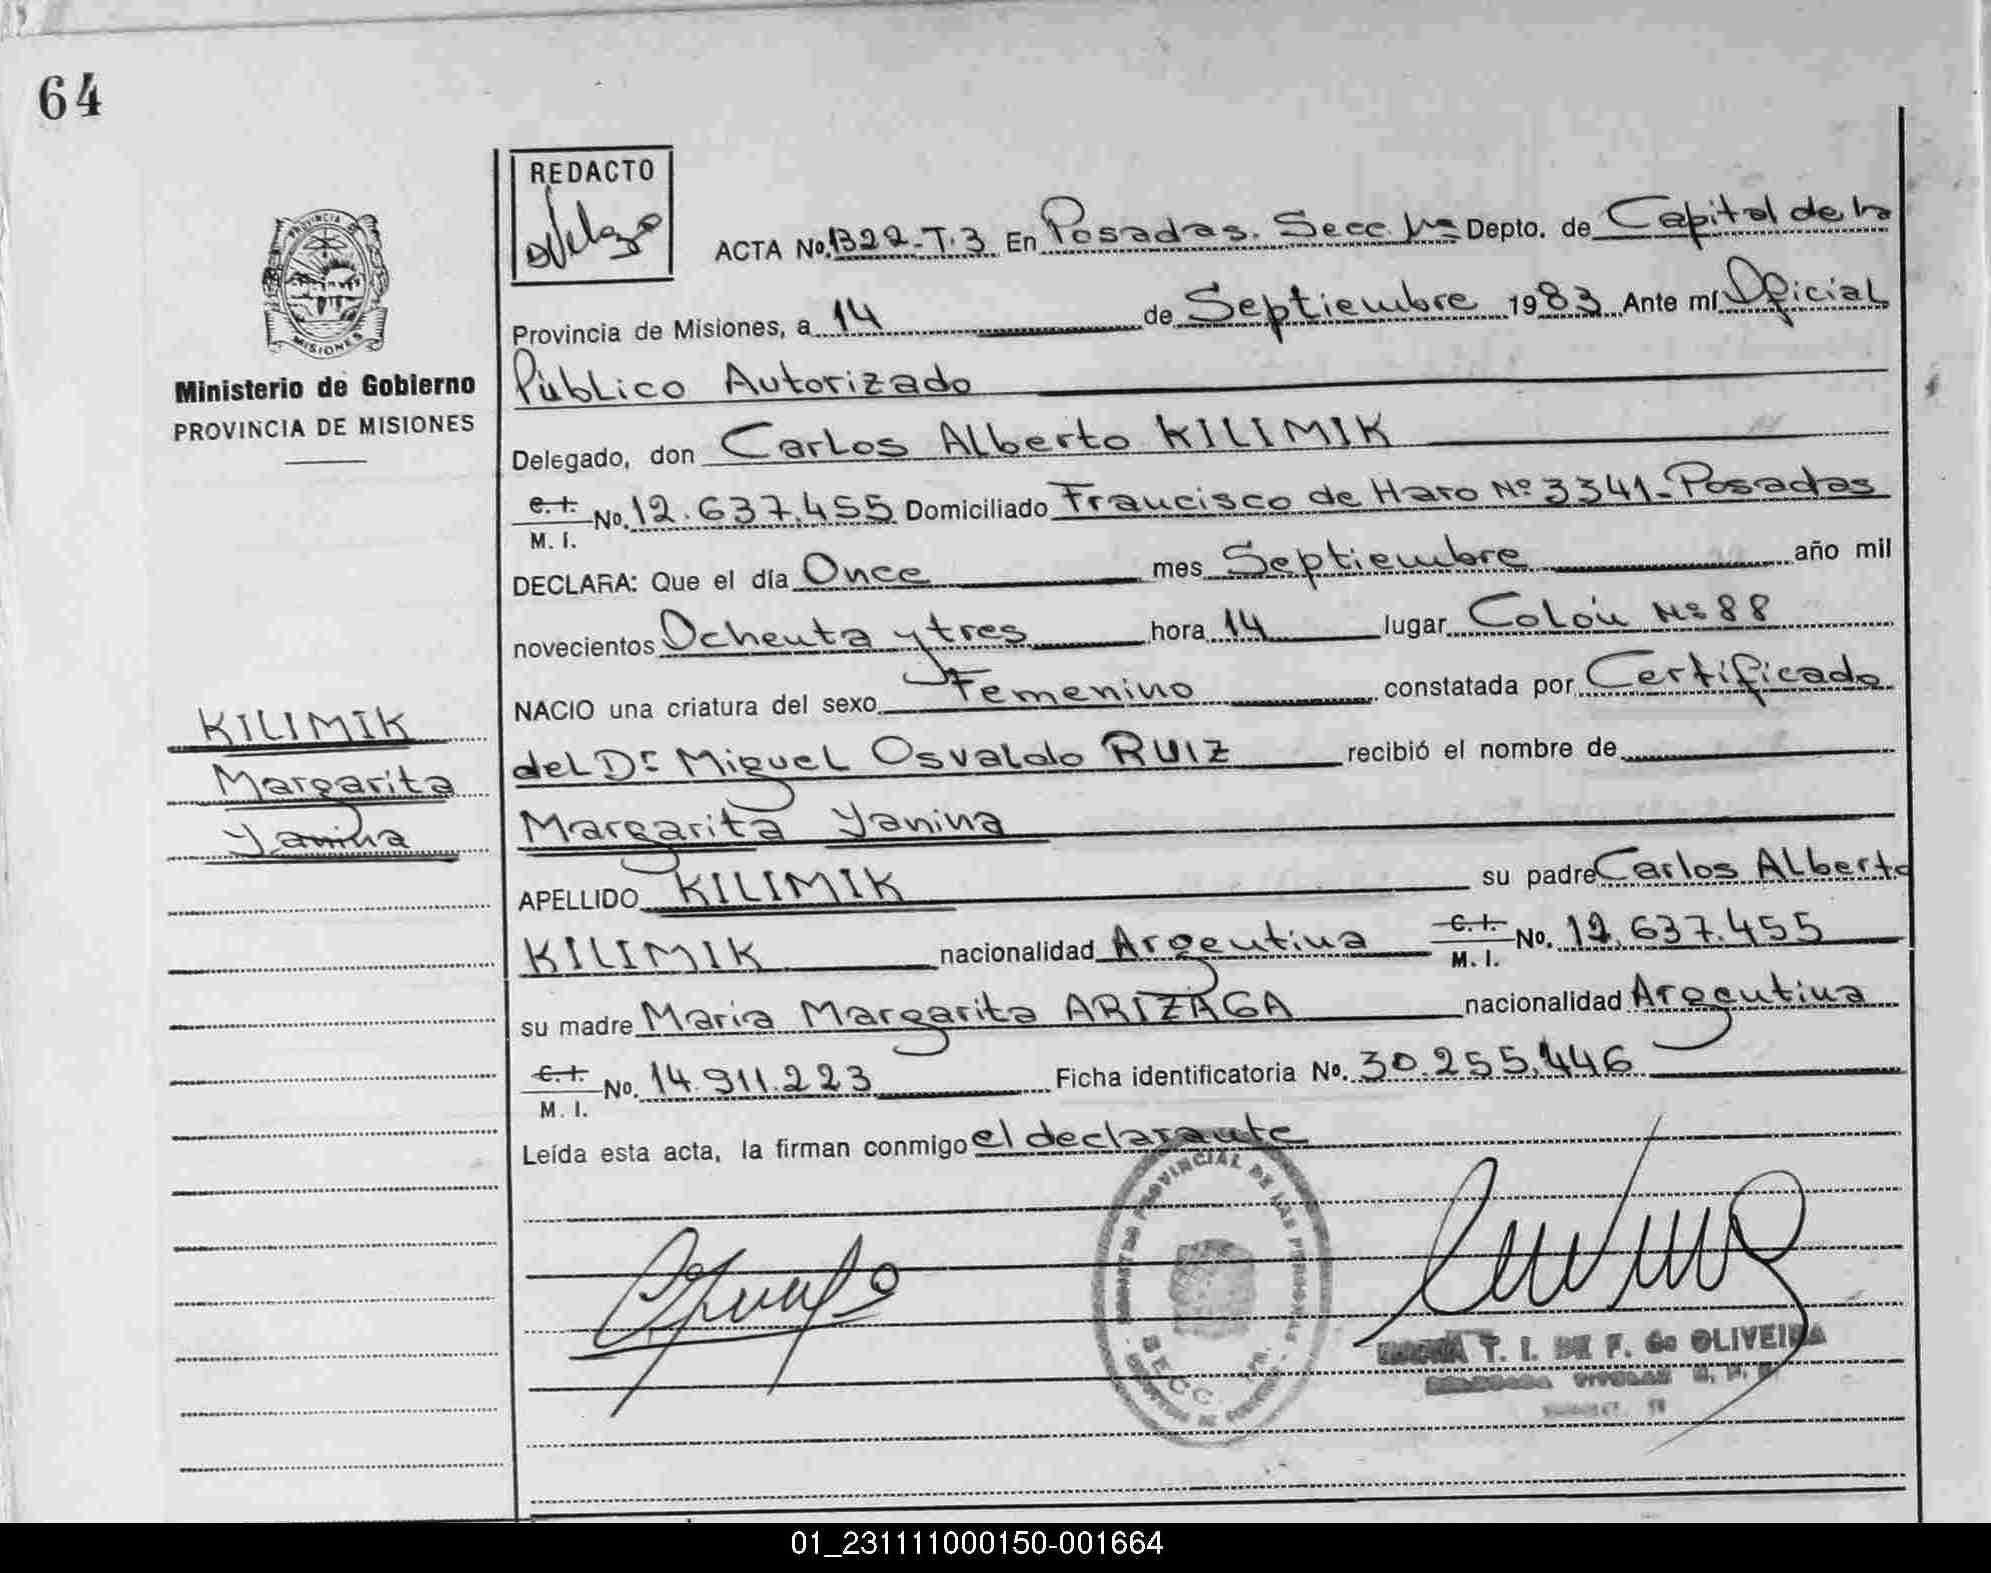 64
REDACTO
ACTA No. 1322-T.3 En Posadas. Secc 1ra Depto. de Capital de la
Provincia de Misiones, a 14 de Septiembre 1983 Ante mí Oficial
Público Autorizado
Delegado, don Carlos Alberto KILIMIK
C.I. M.I. No. 12.637.455 Domiciliado Francisco de Haro Nº 3341-Posadas
DECLARA: Que el día Once mes Septiembre año mil
novecientos Ochenta y tres hora 14 lugar Colón Nº 88
NACIO una criatura del sexo Femenino constatada por Certificado
del Dr Miguel Osvaldo RUIZ recibió el nombre de
Margarita Yanina
APELLIDO KILIMIK su padre Carlos Alberto
KILIMIK nacionalidad Argentina C.I. M.I. No. 12.637.455
su madre Maria Margarita ARIZAGA nacionalidad Argentina
C.I. M.I. No. 14.911.223 Ficha identificatoria No. 30.255.446
Leída esta acta, la firman conmigo el declarante
PROVINCIA
MISIONES
Ministerio de Gobierno
PROVINCIA DE MISIONES
KILIMIK
Margarita
Yanina
PROVINCIAL DE LAS PERSONAS
SECC. 1RA.
T. I. DE F. de OLIVEIRA
01_231111000150-001664